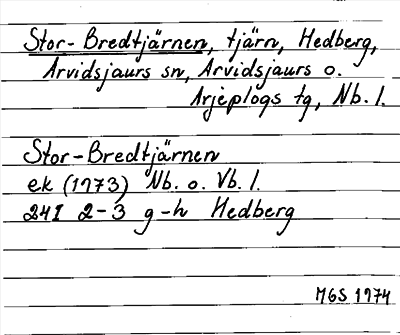 Stor-Bredtjärnen, tjärn, Hedberg,
Arvidsjaurs sn, Arvidsjaurs o.
Arjeplogs tg, Nb. l.
Stor-Bredtjärnen
ek (1973) Nb. o. Vb. l.
24I 2-3 g-h Hedberg
MGS 1974